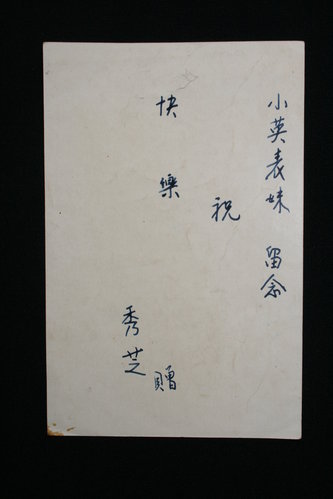 小英表妹 留念
祝
快樂
秀芝 贈